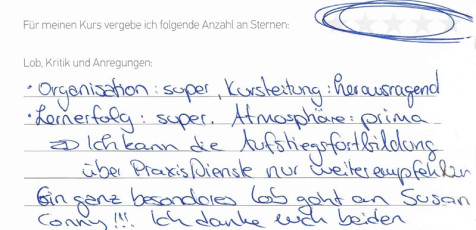 Für meinen Kurs vergebe ich folgende Anzahl an Sternen:
Lob, Kritik und Anregungen:
• Organisation: super, Kursleitung: herausragend
• Lernerfolg: super. Atmosphäre: prima
⇒ Ich kann die Aufstiegsfortbildung
über PraxisDienste nur weiterempfehlen
Ein ganz besonderes Lob geht an Susan
Conny!!! Ich danke euch beiden